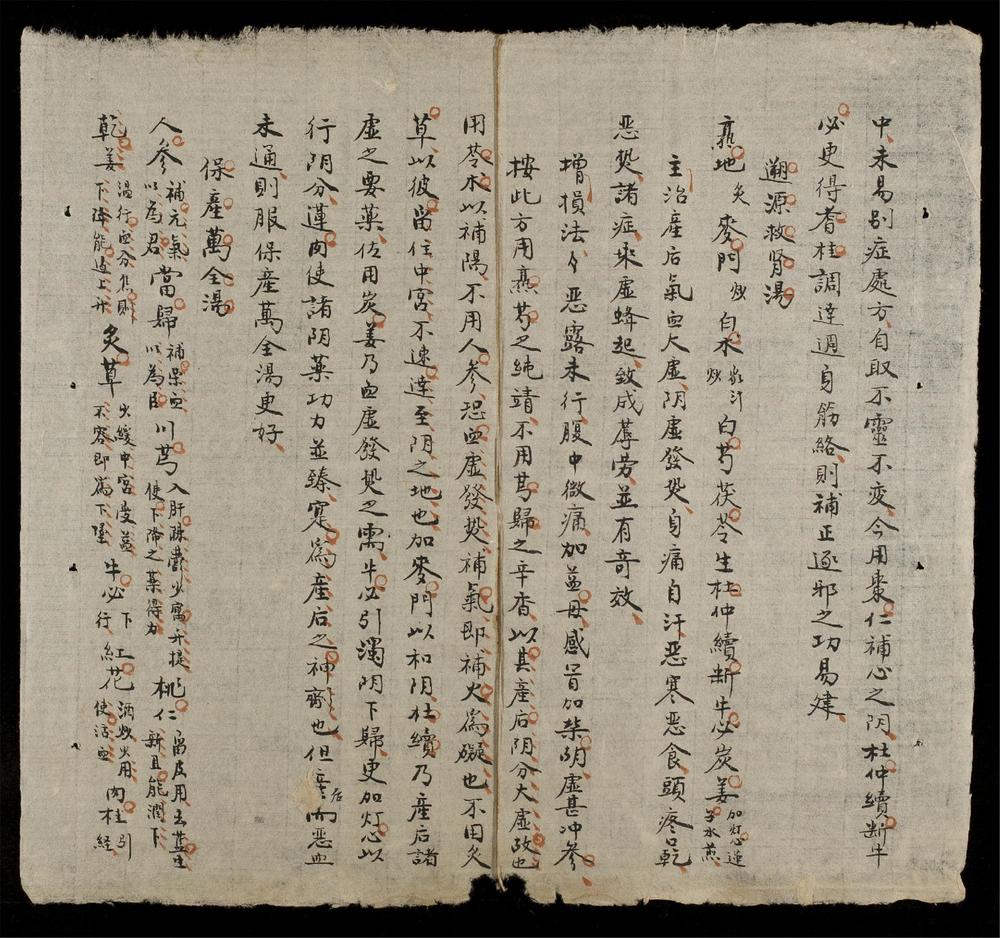 中未易别症處方自取不靈不变今用棗仁補心之阴杜仲續断牛
必更得耆桂調達週身筋絡則補正逐邪之功易建
遡源救肾湯
熟地 炙 麥門 炒 白朮 炒 白芍茯苓生杜仲續断牛必炭姜 加灯心蓮 子水煎
主治産后氣血大虛阴虛發热自痛自汗恶寒恶食頭疼口乾
恶热諸症乘虛蜂起致成蓐劳並有奇效
增損法 恶露未行腹中微痛加益母感冒加柴胡虛甚冲参
按此方用熟芍之純靖不用芎歸之辛香以其産后阴分大虛故也
用苓朮以補陽不用人参恐血虛發热補氣即補火為礙也不用炙
草以彼留住中宮不速達至阴之地也加麥門以和阴杜續乃産后諸
虛之要藥佐用炭姜乃血虛發热之需牛必引濁阴下歸更加灯心以
行阴分蓮肉使諸阴藥功力並臻寔為産后之神齋也但産后而恶血
未通則服保産萬全湯更好
保產萬全湯
人参 補元氣 以為君 當歸 補榮血 以為臣 川芎 入肝疎鬱火寓升提 使下降之藥得力 桃仁 留皮用去其生 新且能潤下
乾姜 温行血分焦則 下降能逐上升 炙草 火緩中宮受益 不容即為下墜 牛必 下 行 紅花 酒炒火用 使活血 肉桂 引 經